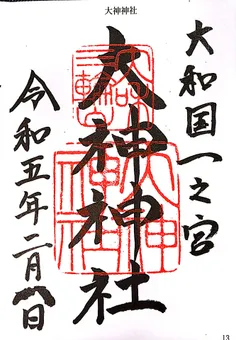 大神神社
大和国一之宮
大神神社
令和五年二月八日
13